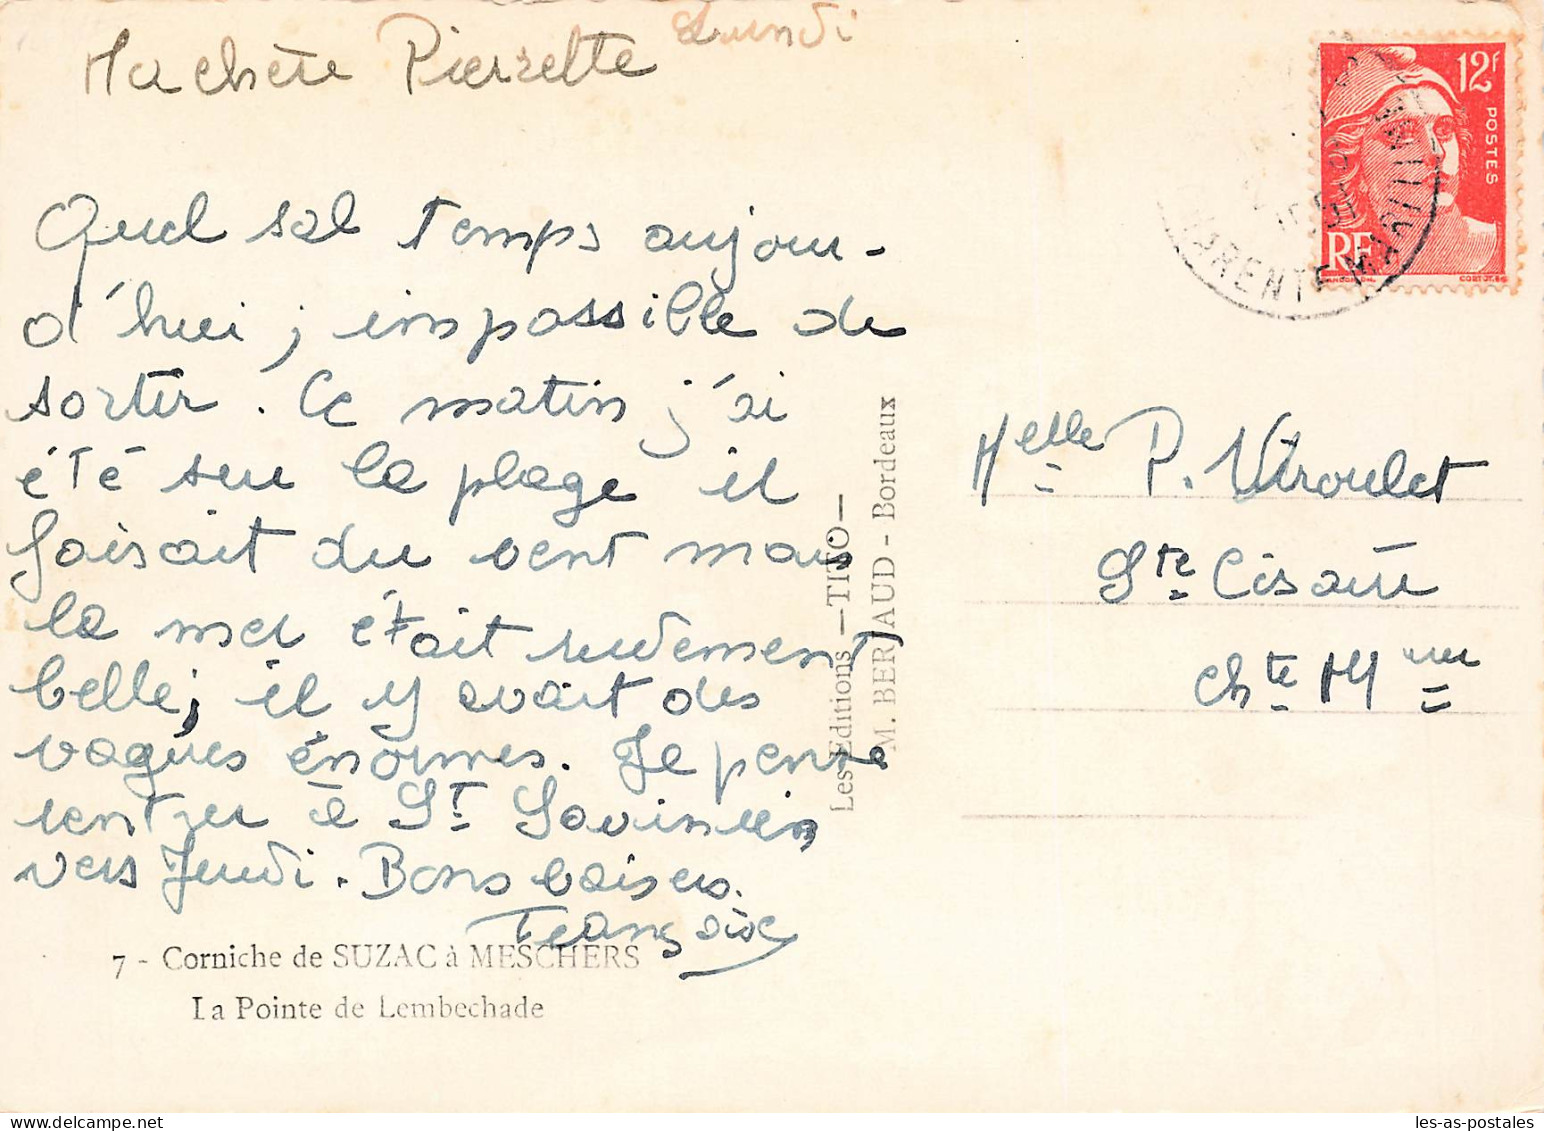 Lundi
Ma chère Pierrette
Quel sal temps aujour-
d'hui ; impossible de
sortir. Ce matin j'ai
été sur la plage il
faisait du vent mais
la mer était rudement
belle ; il y avait des
vagues énormes. Je pense
rentrer à St Savinien
vers Jeudi. Bons baisers.
Françoise
7 - Corniche de SUZAC à MESCHERS
La Pointe de Lembechade
Les Editions —TITO—
M. BERJAUD - Bordeaux
12f
POSTES
RF
CHARENTE MARITIME
Melle P. Véroulet
Ste Césaire
Chte Mme
les-as-postales.com